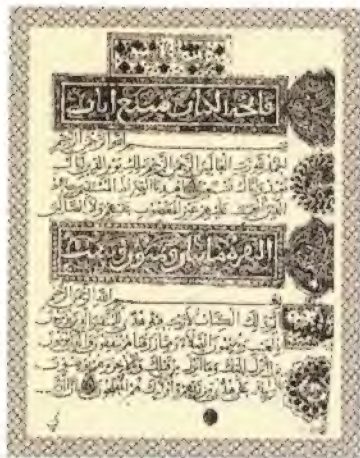 فاتحة الكتاب سبع ايات
بسم الله الرحمن الرحيم
الحمد لله رب العالمين الرحمن الرحيم ملك يوم الدين اياك
نعبد واياك نستعين اهدنا الصراط المستقيم صراط
الذين انعمت عليهم غير المغضوب عليهم ولا الضالين
البقرة مائتان وست
بسم الله الرحمن الرحيم
الم ذلك الكتاب لا ريب فيه هدى للمتقين الذين يؤمنون
بالغيب ويقيمون الصلوة ومما رزقناهم ينفقون والذين يؤمنون
بما انزل اليك وما انزل من قبلك وبالاخرة هم يوقنون
اولئك على هدى من ربهم واولئك هم المفلحون ان الذين